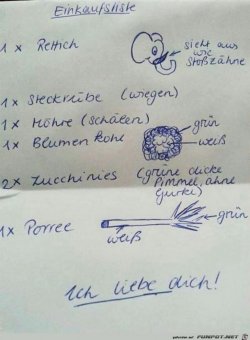 Einkaufsliste
1x Rettich
sieht aus
wie
Stoßzähne
1x Steckrübe (wiegen)
1x Möhre (schälen)
1x Blumenkohl
grün
weiß
2x Zucchinies (grüne dicke
Pimmel, ohne
Gurke)
1x Porree
grün
weiß
Ich liebe dich!
FUNPOT.NET